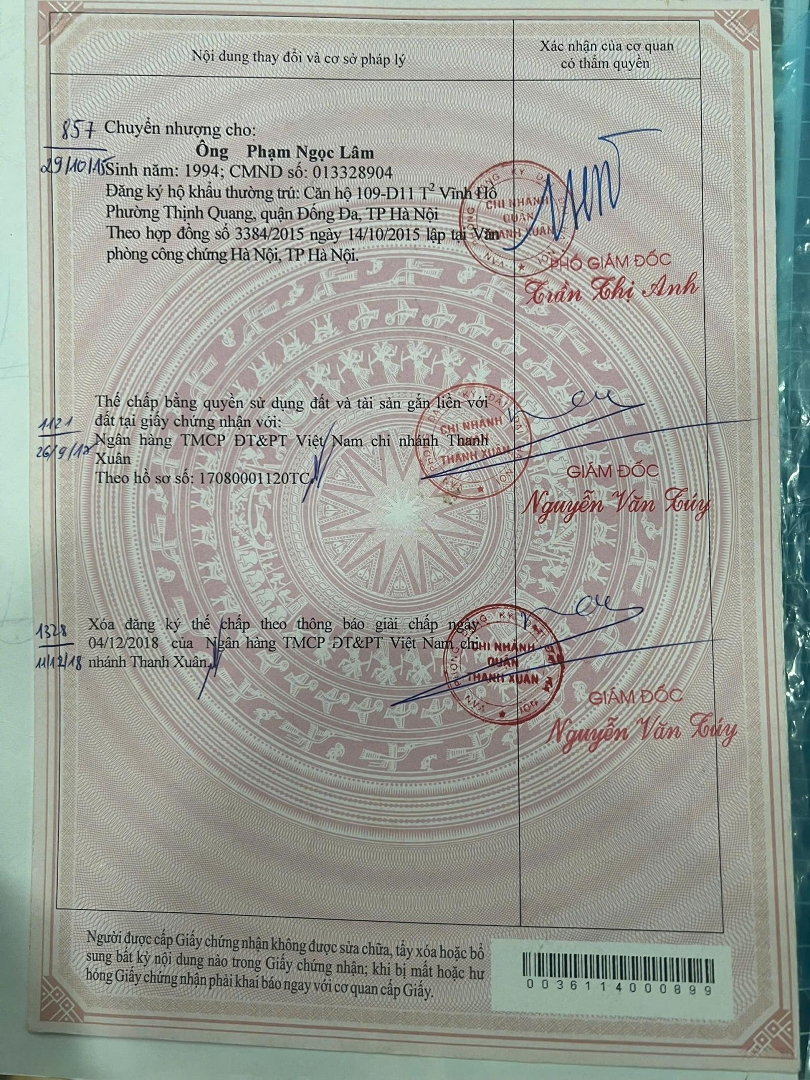 Nội dung thay đổi và cơ sở pháp lý
Xác nhận của cơ quan
có thẩm quyền
857
29/10/15
Chuyển nhượng cho:
Ông Phạm Ngọc Lâm
Sinh năm: 1994; CMND số: 013328904
Đăng ký hộ khẩu thường trú: Căn hộ 109-D11 T² Vĩnh Hồ
Phường Thịnh Quang, quận Đống Đa, TP Hà Nội
Theo hợp đồng số 3384/2015 ngày 14/10/2015 lập tại Văn
phòng công chứng Hà Nội, TP Hà Nội.
CHI NHÁNH
QUẬN
THANH XUÂN
PHÓ GIÁM ĐỐC
Trần Thị Anh
1121
26/9/17
Thế chấp bằng quyền sử dụng đất và tài sản gắn liền với
đất tại giấy chứng nhận với:
Ngân hàng TMCP ĐT&PT Việt Nam chi nhánh Thanh
Xuân
Theo hồ sơ số: 17080001120TC
CHI NHÁNH
THANH XUÂN
GIÁM ĐỐC
Nguyễn Văn Túy
1328
11/12/18
Xóa đăng ký thế chấp theo thông báo giải chấp ngày
04/12/2018 của Ngân hàng TMCP ĐT&PT Việt Nam chi
nhánh Thanh Xuân
CHI NHÁNH
QUẬN
THANH XUÂN
GIÁM ĐỐC
Nguyễn Văn Túy
Người được cấp Giấy chứng nhận không được sửa chữa, tẩy xóa hoặc bổ
sung bất kỳ nội dung nào trong Giấy chứng nhận; khi bị mất hoặc hư
hỏng Giấy chứng nhận phải khai báo ngay với cơ quan cấp Giấy.
0036114000899